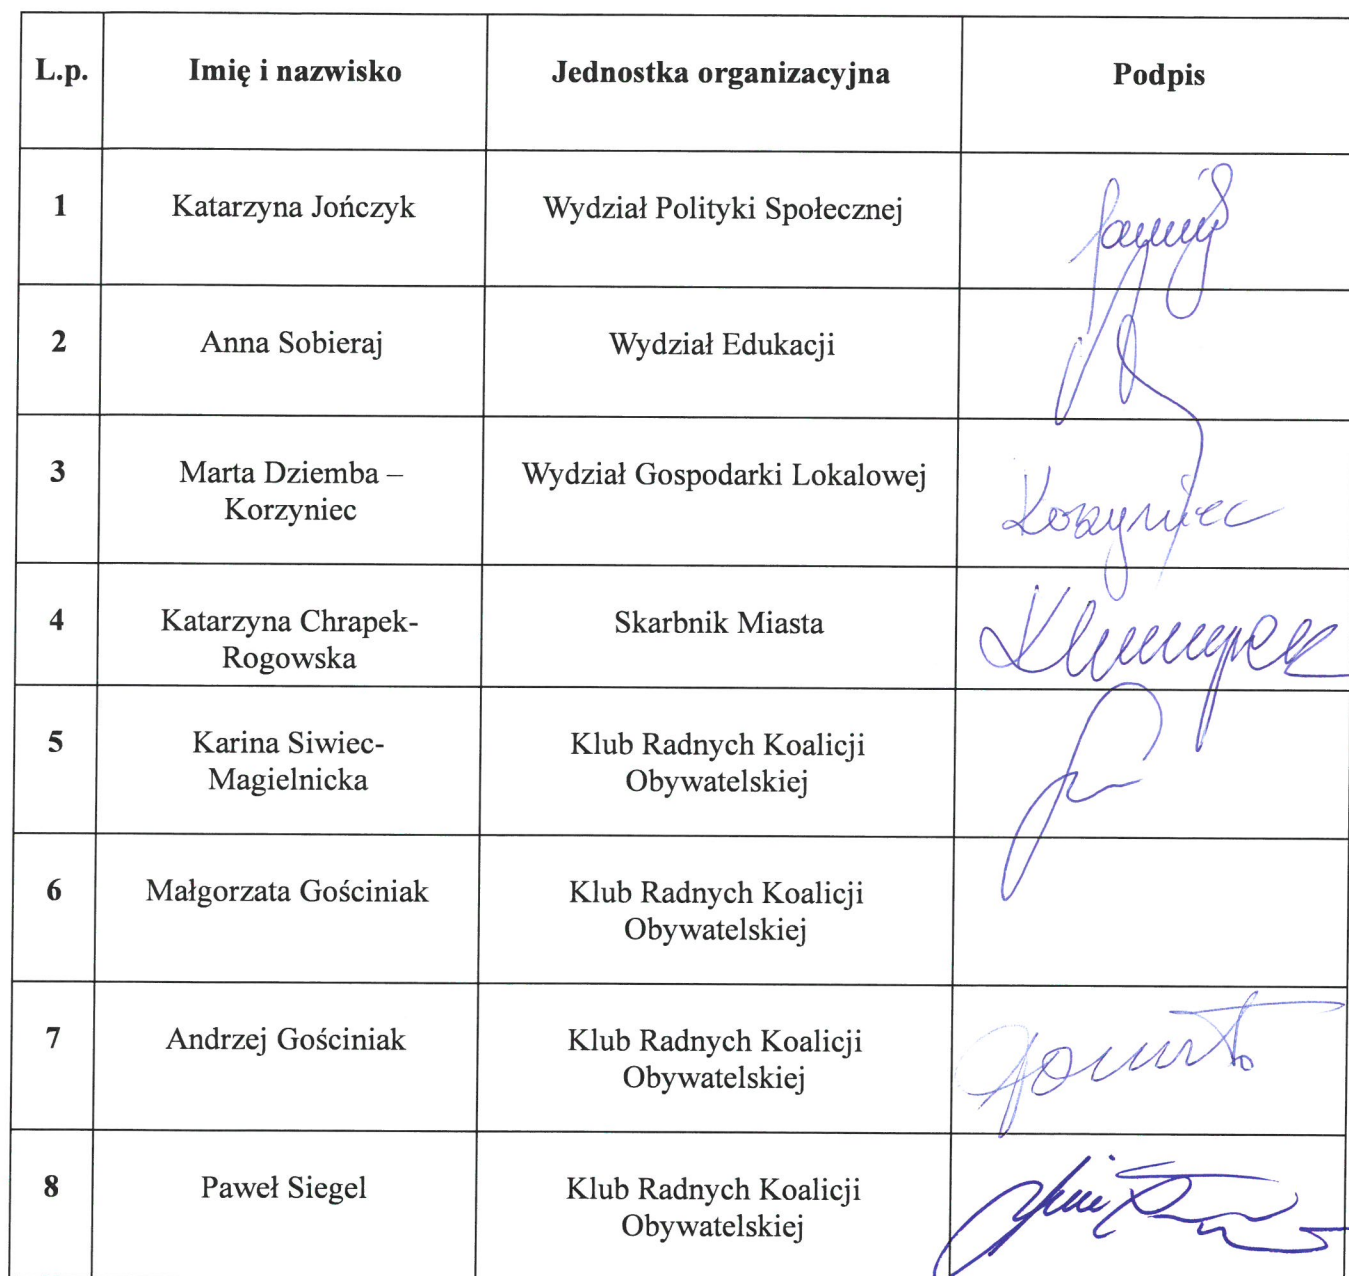 L.p. Imię i nazwisko Jednostka organizacyjna Podpis
1 Katarzyna Jończyk Wydział Polityki Społecznej
2 Anna Sobieraj Wydział Edukacji
3 Marta Dziemba – Wydział Gospodarki Lokalowej
Korzyniec
Korzyniec
4 Katarzyna Chrapek- Skarbnik Miasta
Rogowska
5 Karina Siwiec- Klub Radnych Koalicji
Magielnicka Obywatelskiej
6 Małgorzata Gościniak Klub Radnych Koalicji
Obywatelskiej
7 Andrzej Gościniak Klub Radnych Koalicji
Obywatelskiej
8 Paweł Siegel Klub Radnych Koalicji
Obywatelskiej